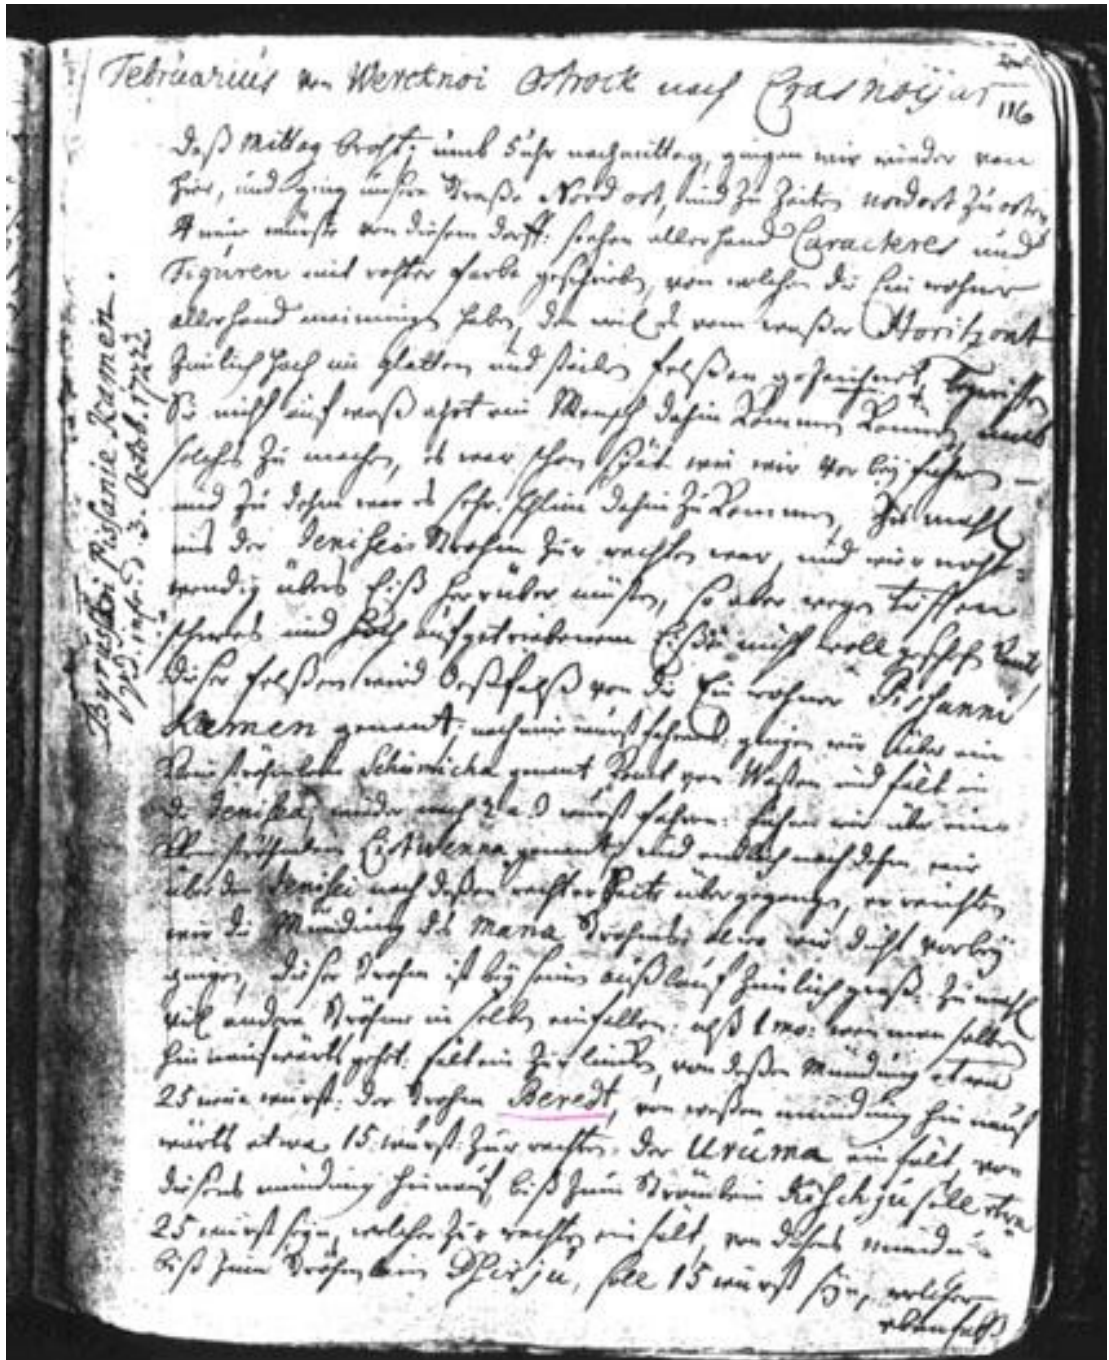 Februarius von Wercknoi Ostrock nach Crasnoijar
116
daß Mittag broht; umb 5 uhr nachmittag, gingen wir wieder von
hier, und ging unsere Straße Nord ost, und zu Zeiten nordost zu osten
4 neue würste von diesem dorff: stehen allerhand Caracteres und
Figuren mit rohter farbe geschrieben, von welchen die Einwohner
allerhand meinungen haben, den weil es vom waßer Horitzont
zimlich hoch an glatten und steilen felßen gezeichnet, begreiffen
Sie nicht auf waß ahrt ein Mensch dahin kommen können, umb
solches zu machen, es war schon spät wie wir vorbeÿ fuhren
und zu dehm war es sehr schlim dahin zu kommen, zu mahl
uns der Jeniseis Strohm zur rechten war, und wir noht-
wendig übers Eiß herrüber müsten, so aber wegen tieffen
schnees und hoch aufgetriebenem Eiße nicht woll geschehen
dieser felßen wird von die Einwohner Pischanni
Kamen genant: noch eine würst fahrend, gingen wir über ein
klein ströhmlein Schumicha genant komt von Westen und fält in
die Jenisea; wieder nach 2 a 3 würst fahren: fuhren wir über ein
klein genant, und endlich nach dehm wir
über den Jenisei nach deßen rechter Seite über gegangen, erreichten
wir die Mündung des Mana Strohms: alwo wir dicht vorbeÿ
gingen, dieser Strohm ist beÿ seinen außlauf zimlich groß: zu mahl
viel andere Ströhme in selben einfallen: alß 1 mo: wen man selben
hinaufwärts gehet: fält ein zur lincken, von deßen Mündung etwa
25 neue würst: der Strohm Beredt, von weßen mündung hinauf
wärts etwa 15 würst zur rechten der Uruma ein fält, von
dieses mündung hinauf biß zum Strömlein soll etwa
25 würst seÿn, welcher zur rechten ein fält, von dieses mündung
biß zum Ströhmlein soll 15 würst seÿn, welcher
ebenfalß
Byrustoi Pissanie Kamen.
vid. infr: d. 3. Octob. 1722